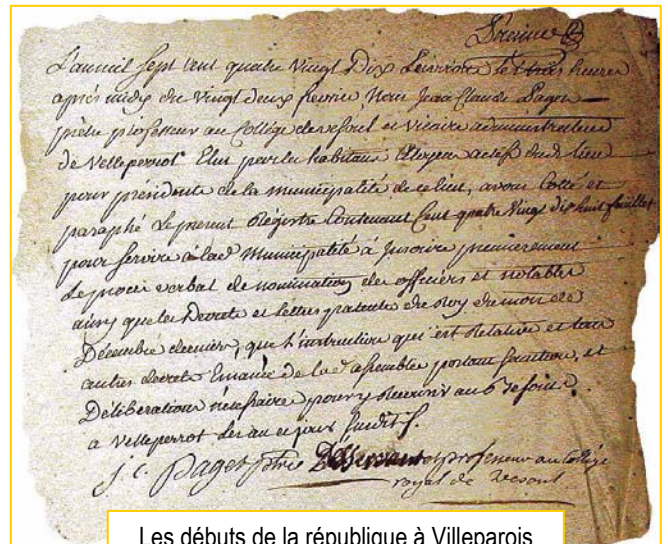 Premier
L'an mil sept cent quatre Vingt Dix Environ les trois heures
après midy du Vingt deux fevrier Nous Jean Claude Paget
prêtre professeur au Collége de vesoul et vicaire administrateur
de Velleperrot Elus par les habitans Citoyens actifs du d. lieu
pour présidente de la municipalité de ce lieu, avons Cotté et
paraphé Le present Régistre Contenant Cent quatre Vingt dix huit feuillets
pour servire à lad. Municipalité à Inscrire premierement
Le procès verbal de nomination des officiers et notables
ainsy que les Decrets et lettres patentes du Roy du mois de
Décembre dernier, que L'instruction qui est Relative et tous
autres decrets Emanés de la d. assemblée portant sanction, et
Déliberations nécessaires pour y Recourir au Besoin
a Velleperrot Les an et jour susdits.
J. C. Paget ptre Desservant et professeur au Collége
royal de Vesoul
Les débuts de la république à Villeparois